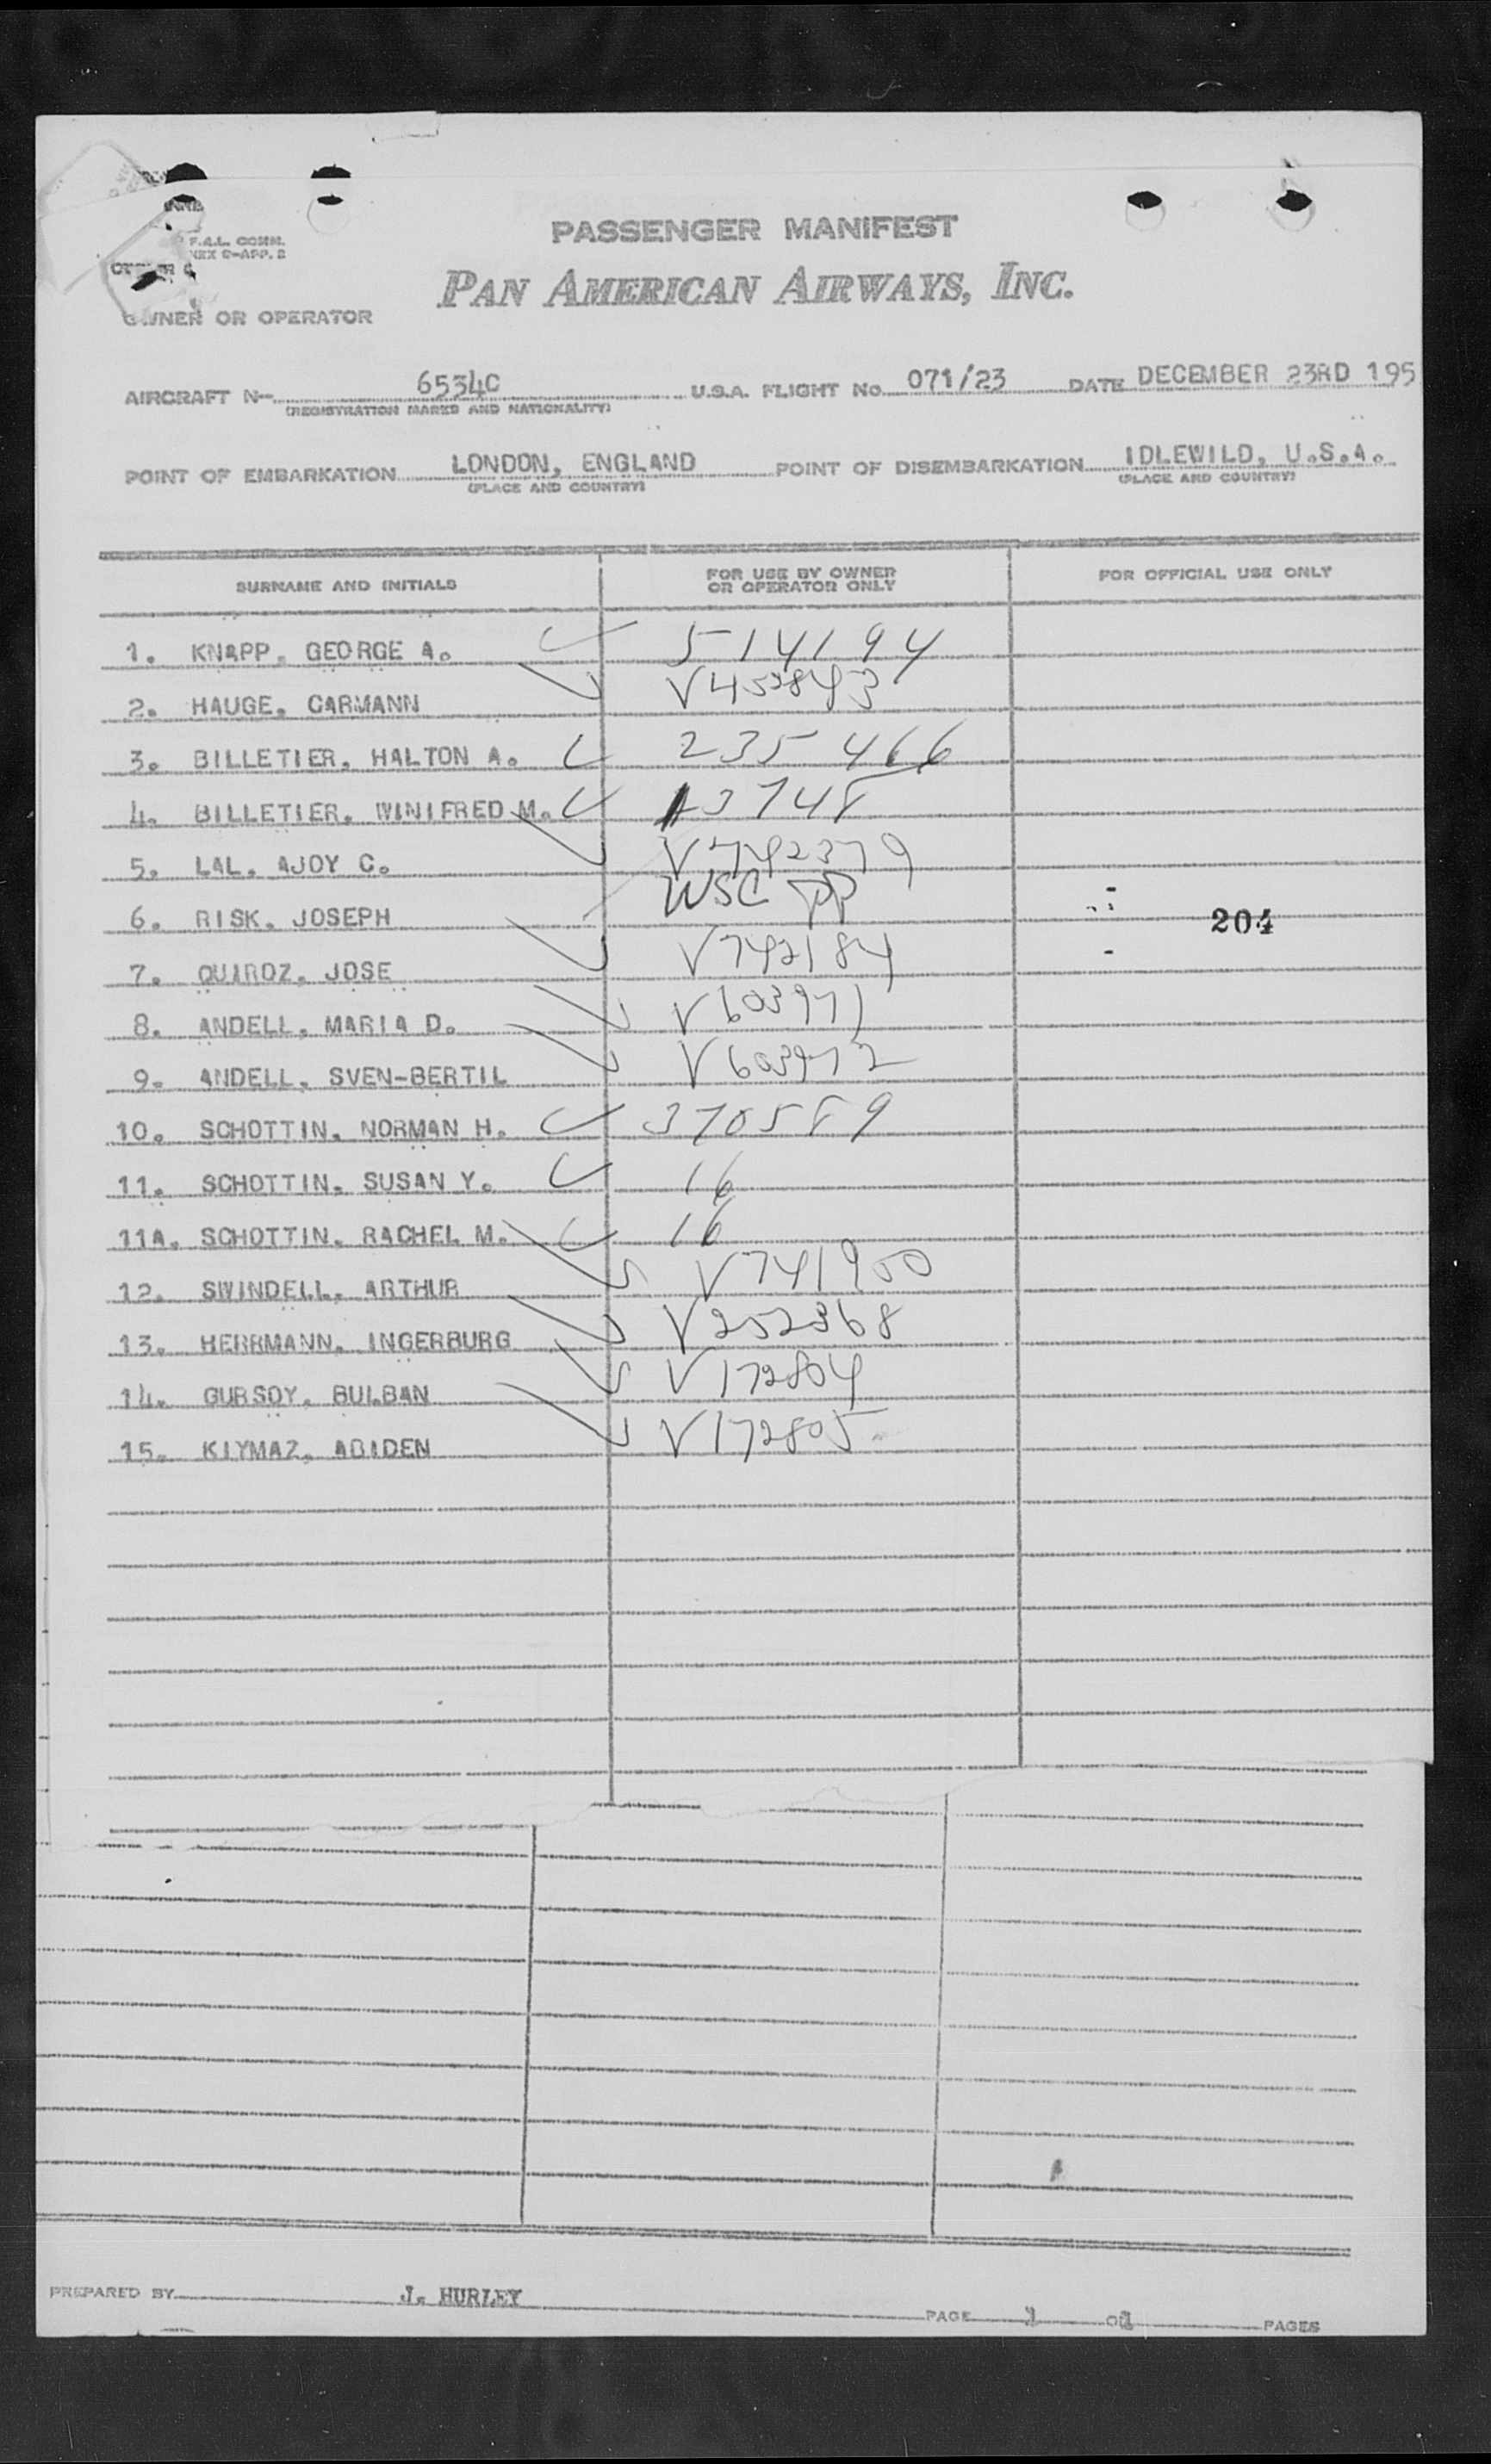 PASSENGER MANIFEST
F.A.L. COMM.
NEX 9-APP. 2
PAN AMERICAN AIRWAYS, INC.
OWNER OR OPERATOR
AIRCRAFT N- 6534C U.S.A. FLIGHT No. 071/23 DATE DECEMBER 23RD 195
(REGISTRATION MARKS AND NATIONALITY)
POINT OF EMBARKATION LONDON, ENGLAND POINT OF DISEMBARKATION IDLEWILD, U.S.A.
(PLACE AND COUNTRY) (PLACE AND COUNTRY)
SURNAME AND INITIALS FOR USE BY OWNER OR OPERATOR ONLY FOR OFFICIAL USE ONLY
1. KNAPP, GEORGE A. 514194
2. HAUGE, CARMANN V459843
3. BILLETIER, HALTON A. 235466
4. BILLETIER, WINIFRED M. 13748
5. LAL, AJOY C. V742379
6. RISK, JOSEPH WSC PP 204
7. QUIROZ, JOSE V742184
8. ANDELL, MARIA D. V603971
9. ANDELL, SVEN-BERTIL V603972
10. SCHOTTIN, NORMAN H. 370589
11. SCHOTTIN, SUSAN Y. 16
11A. SCHOTTIN, RACHEL M. 16
12. SWINDELL, ARTHUR V741900
13. HERRMANN, INGERBURG V252368
14. GURSOY, BULBAN V172804
15. KIYMAZ, ABIDEN V172805
PREPARED BY J. HURLEY PAGE 1 OF PAGES